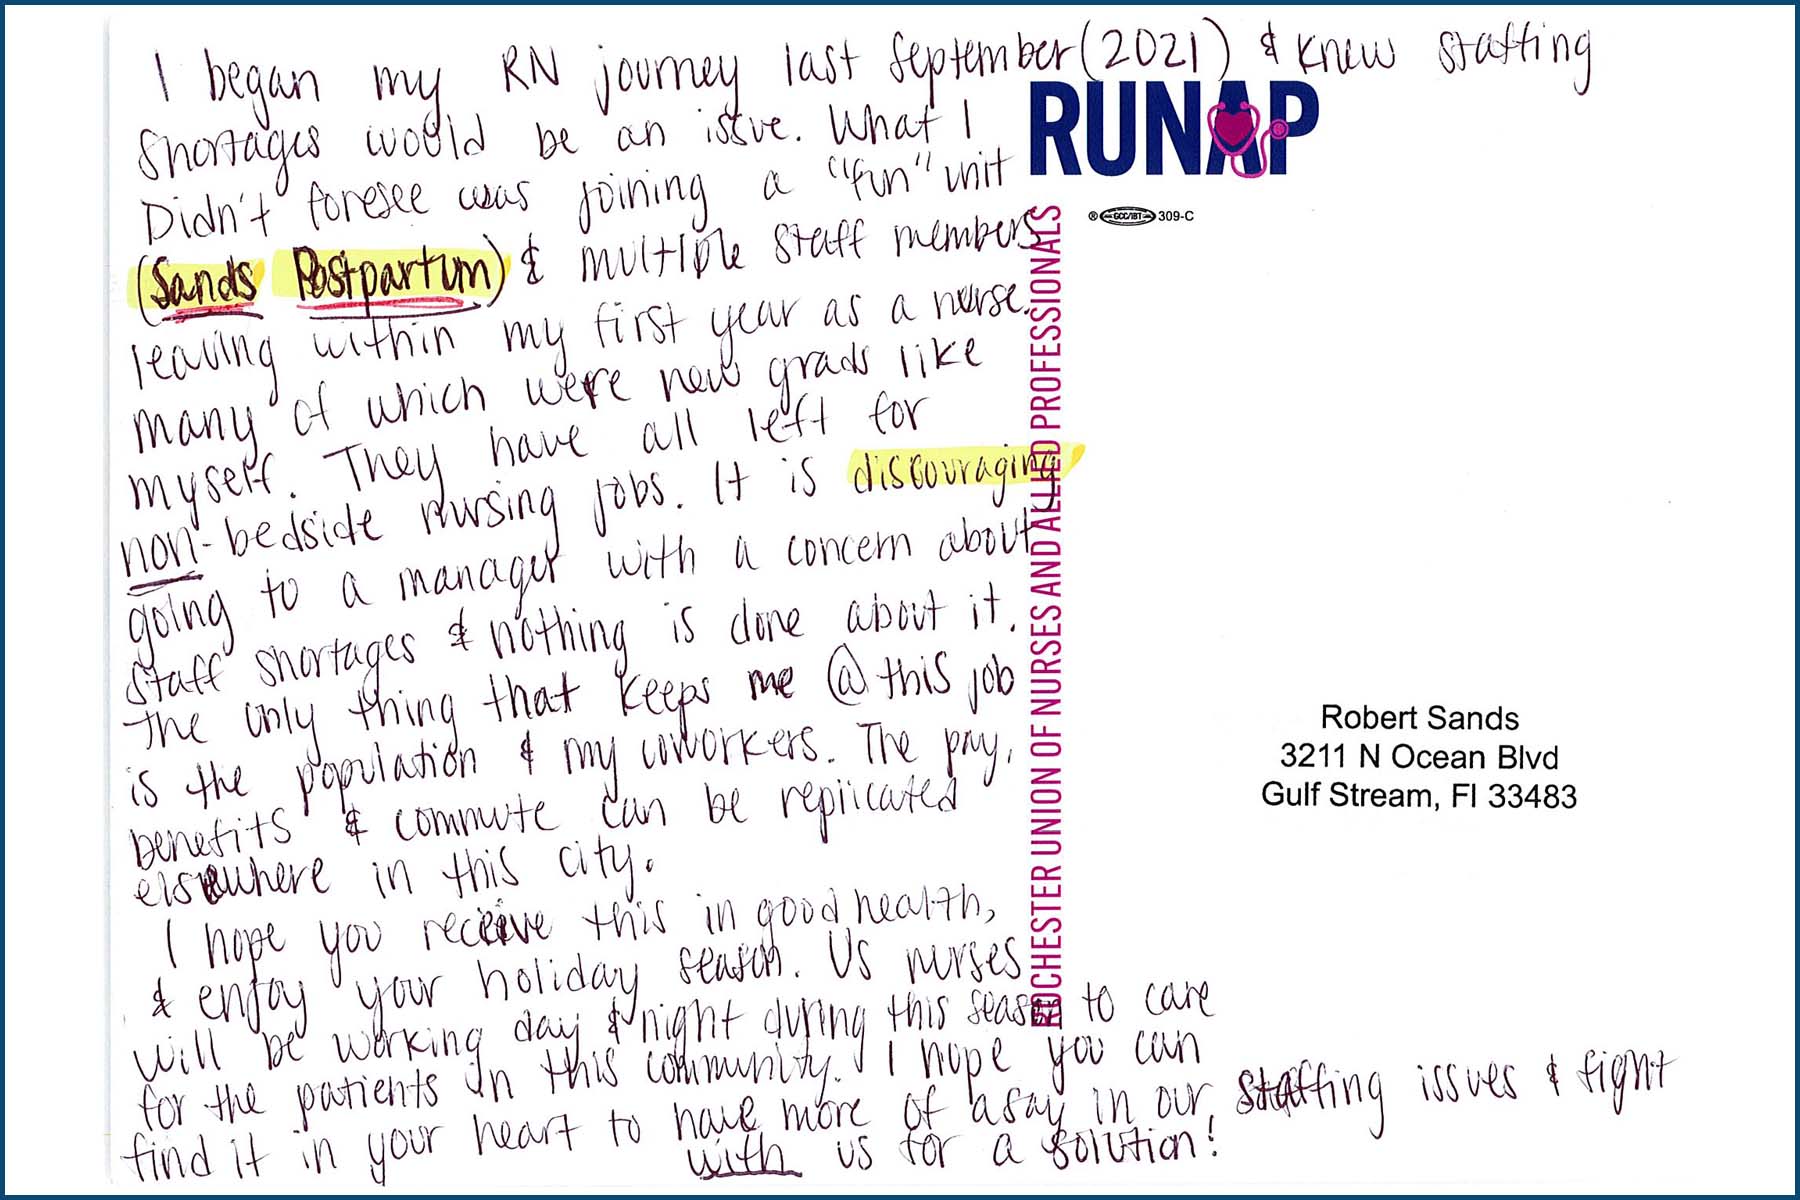 I began my RN journey last September (2021) & knew staffing
shortages would be an issue. What I
Didn't foresee was joining a "fun" unit
(Sands Postpartum) & multiple staff members
leaving within my first year as a nurse.
many of which were new grads like
myself. They have all left for
non-bedside nursing jobs. It is discouraging
going to a manager with a concern about
staff shortages & nothing is done about it.
The only thing that keeps me @ this job
is the population & my coworkers. The pay,
benefits & commute can be replicated
elsewhere in this city.
I hope you receive this in good health,
& enjoy your holiday season. Us nurses
will be working day & night during this season to care
for the patients in this community. I hope you can
find it in your heart to have more of a say in our staffing issues & fight
with us for a solution!
RUNAP
® GCC/IBT 309-C
ROCHESTER UNION OF NURSES AND ALLIED PROFESSIONALS
Robert Sands
3211 N Ocean Blvd
Gulf Stream, Fl 33483